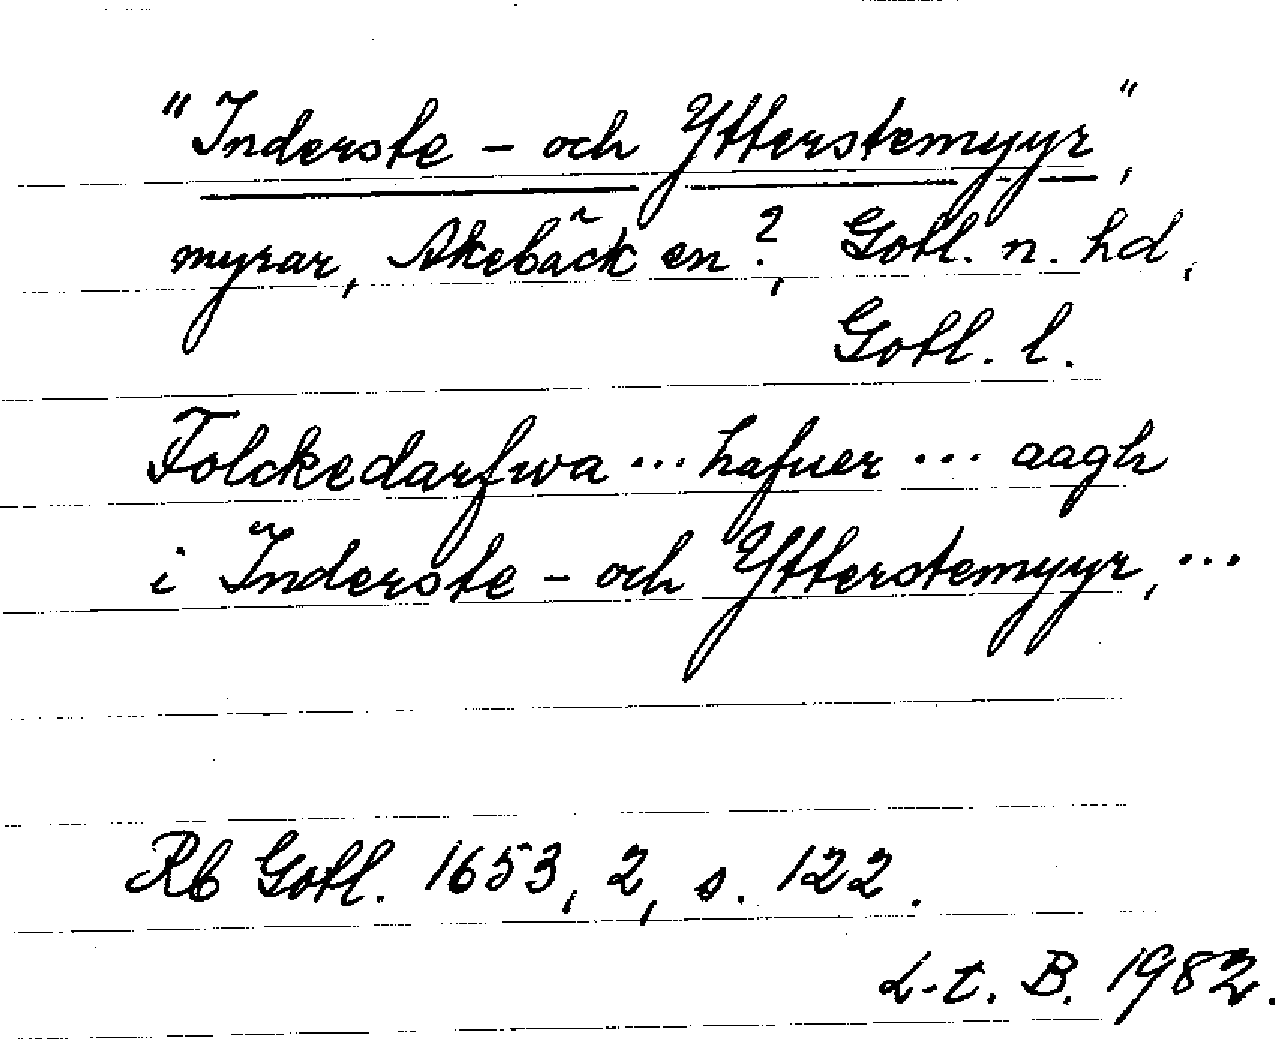 "Inderste - och Ytterstemyyr",
myrar, Akebäck sn?, Gotl. n. hd,
Gotl. l.
Folckedarfwa ... hafuer ... aagh
i Inderste - och Ytterstemyyr, ...
Rb Gotl. 1653, 2, s. 122.
L-t. B. 1982.